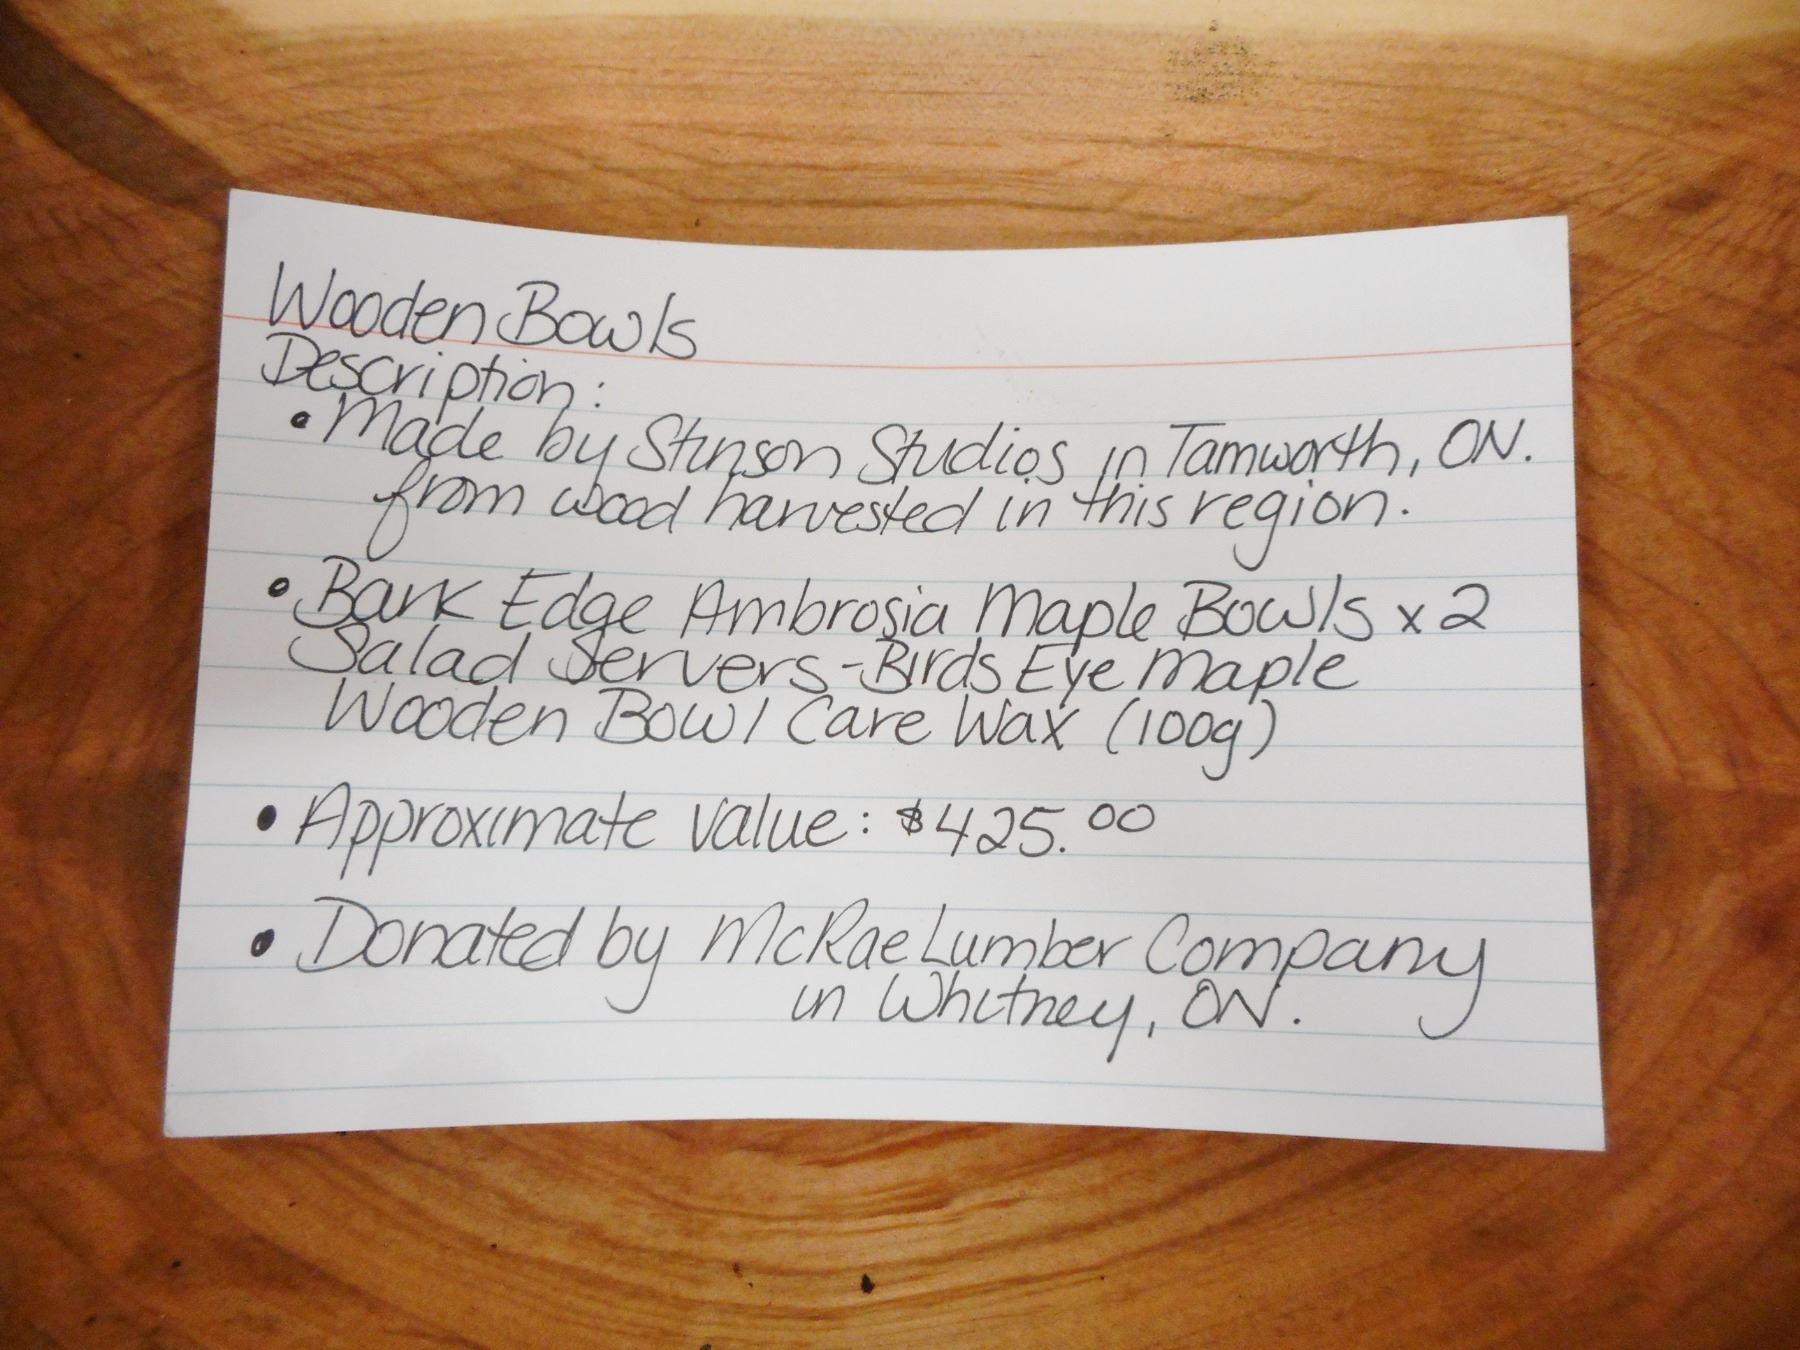 Wooden Bowls
Description:
• Made by Stinson Studios in Tamworth, ON.
from wood harvested in this region.
• Bark Edge Ambrosia Maple Bowls x 2
Salad Servers - Birds Eye Maple
Wooden Bowl Care Wax (100g)
• Approximate value: $425.00
• Donated by McRae Lumber Company
in Whitney, ON.